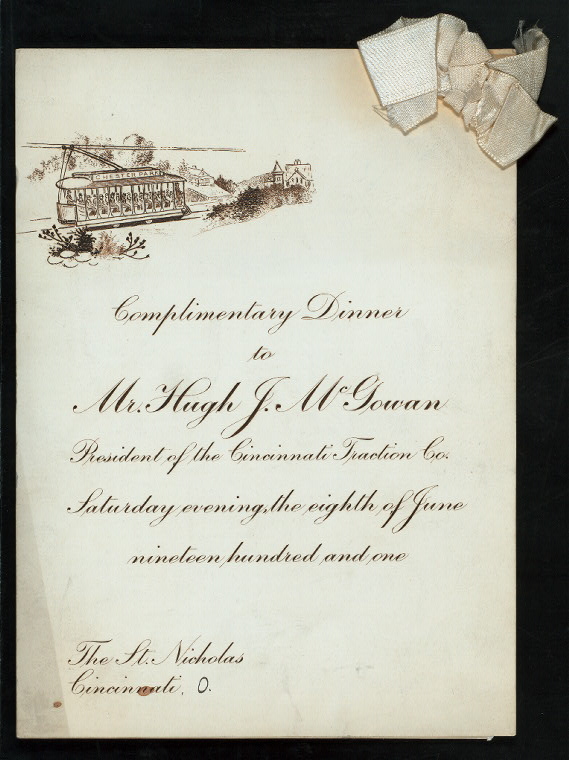 CHESTER PARK
Complimentary Dinner
to
Mr. Hugh J. McGowan
President of the Cincinnati Traction Co.
Saturday evening, the eighth of June
nineteen hundred and one
The St. Nicholas
Cincinnati, O.